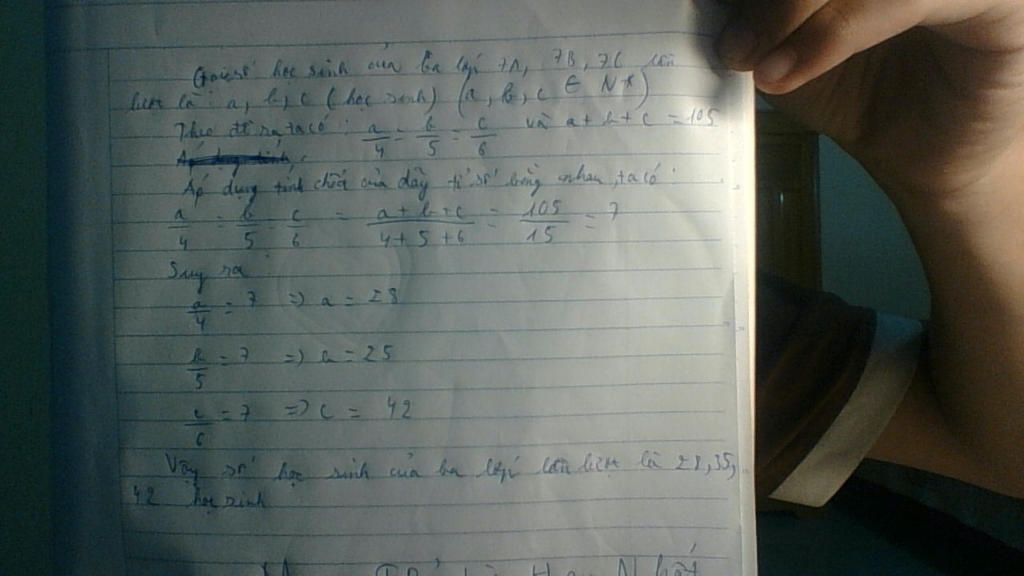 Gọi số học sinh của ba lớp 7A, 7B, 7C lần
lượt là: a, b, c (học sinh) (a, b, c ∈ N*)
Theo đề ra ta có: a/4 = b/5 = c/6 và a + b + c = 105
Áp dụng tính chất của dãy tỉ số bằng nhau, ta có:
a/4 = b/5 = c/6 = (a+b+c)/(4+5+6) = 105/15 = 7
Suy ra
a/4 = 7 => a = 28
b/5 = 7 => a = 25
c/6 = 7 => c = 42
Vậy số học sinh của ba lớp lần lượt là 28, 35,
42 học sinh